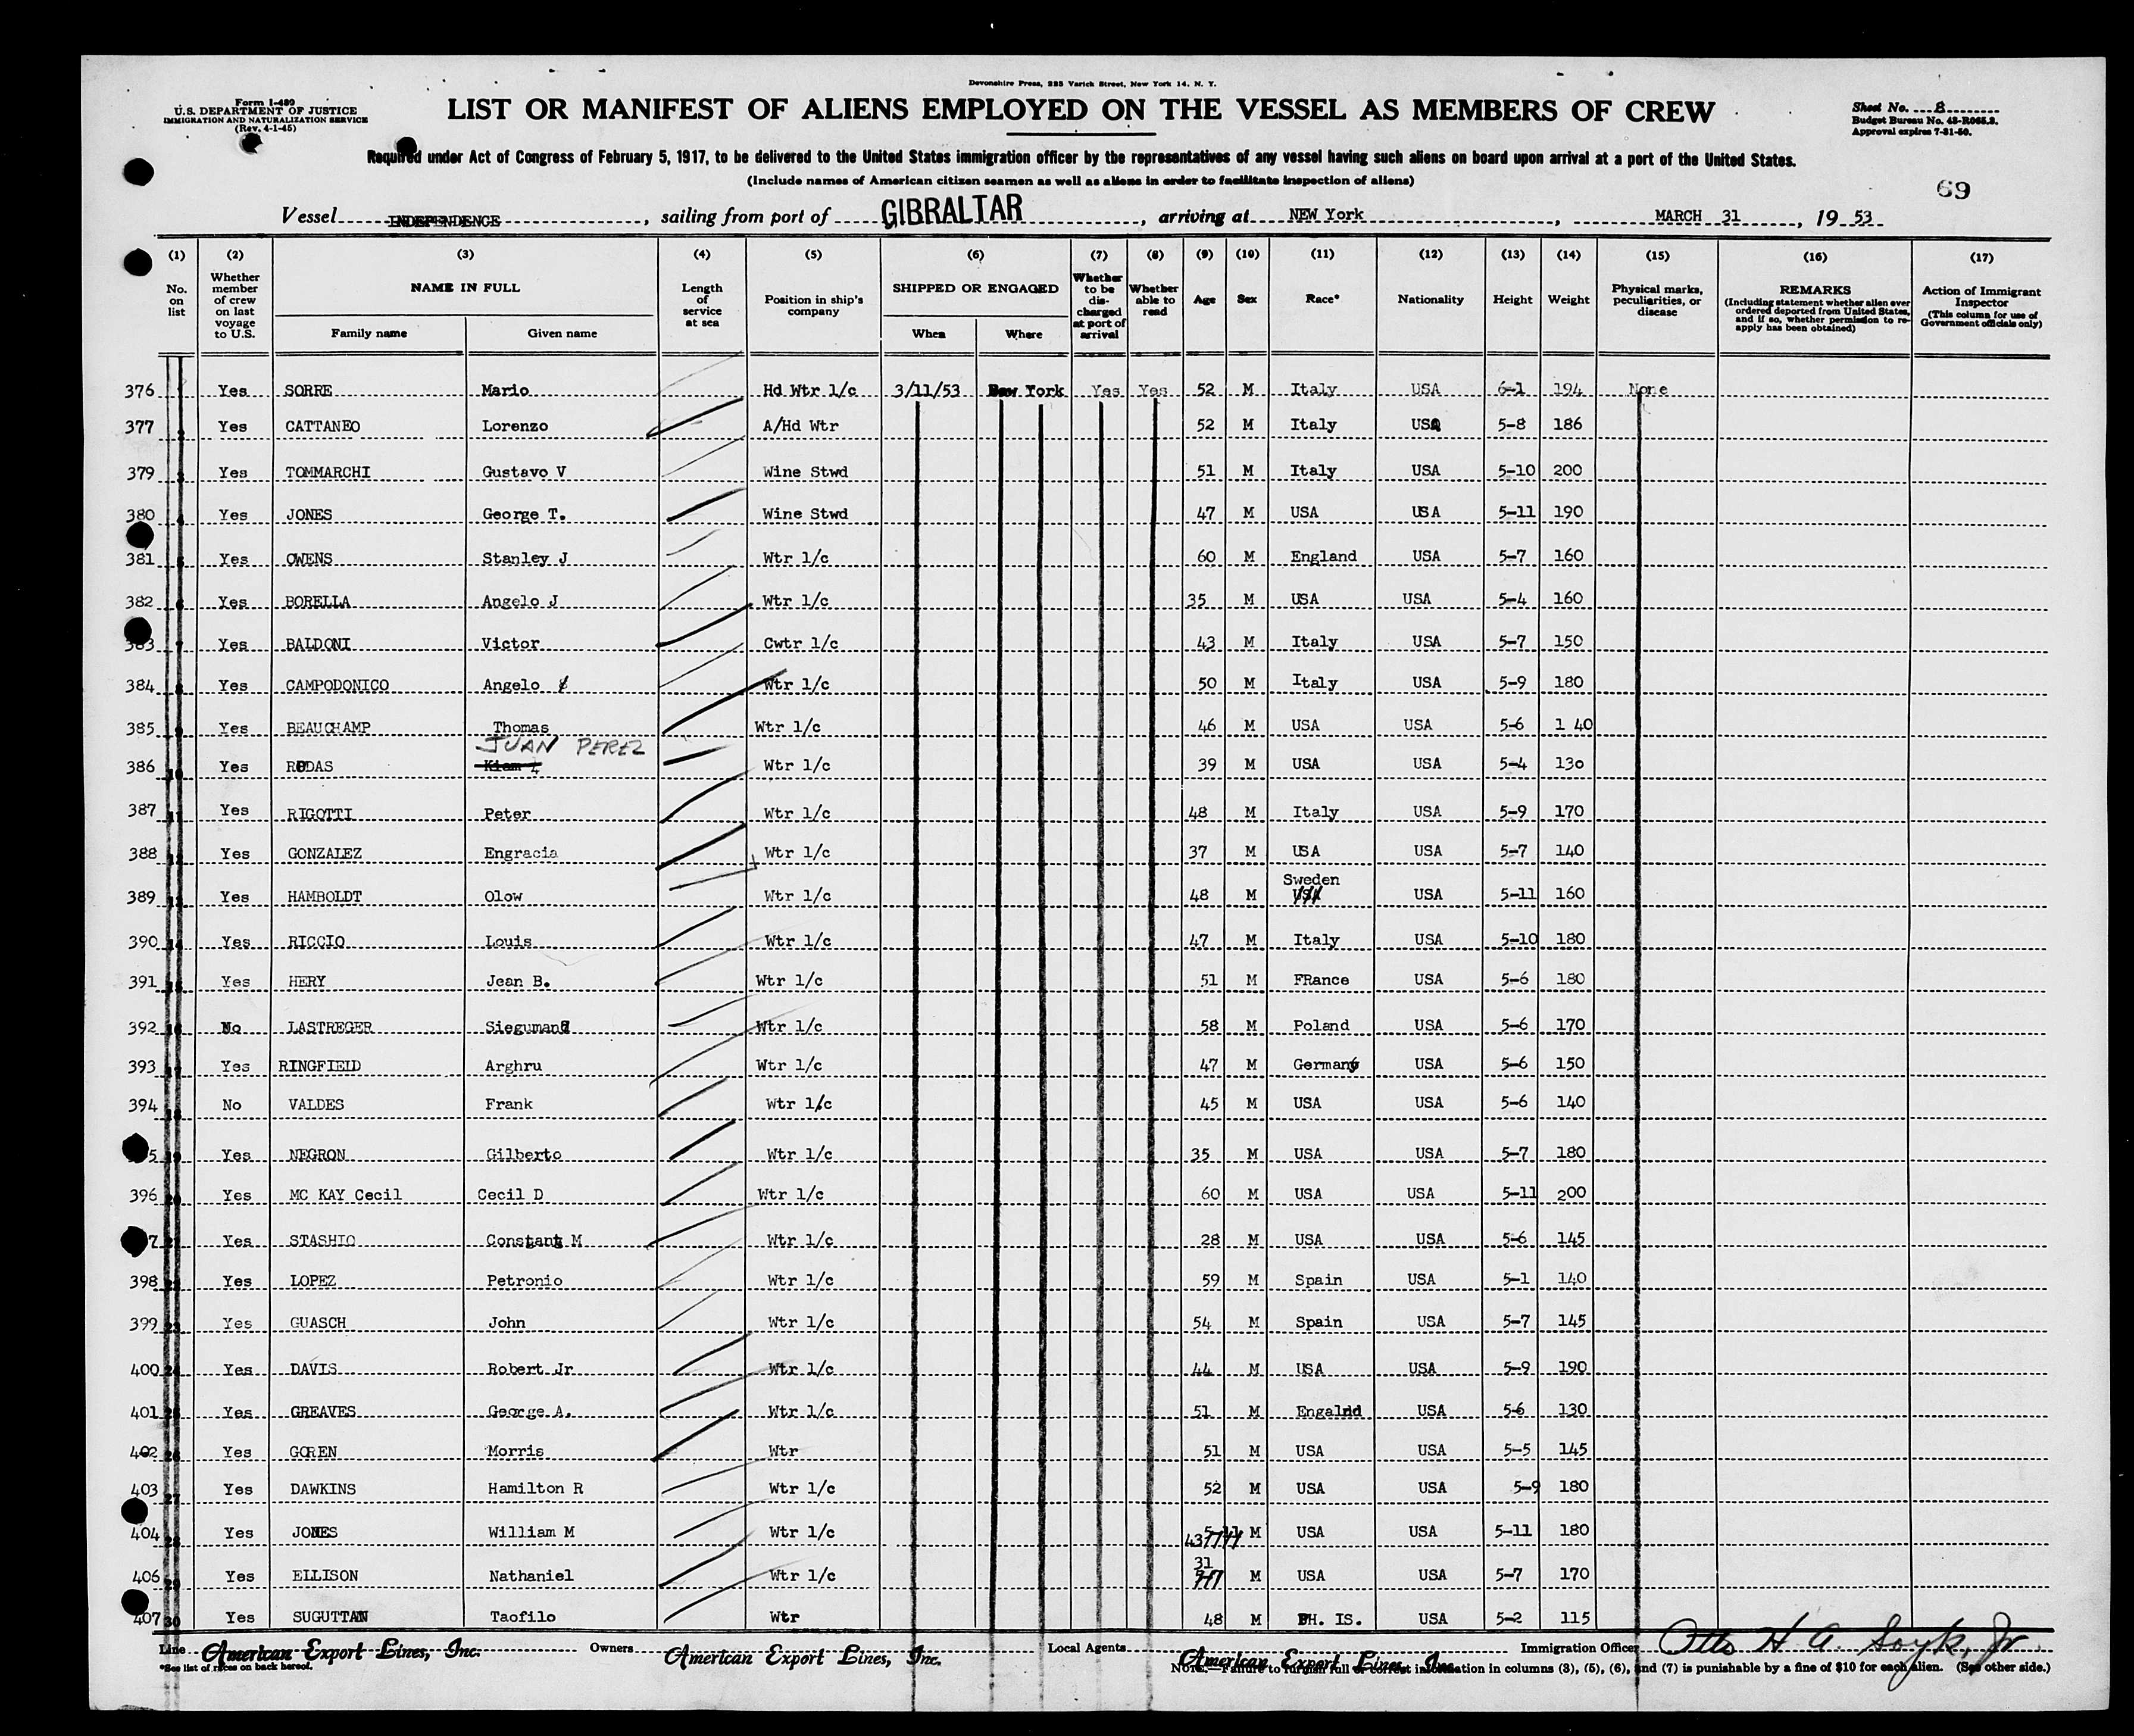 Devonshire Press, 225 Varick Street, New York 14, N. Y.
Form I-489
U.S. DEPARTMENT OF JUSTICE
IMMIGRATION AND NATURALIZATION SERVICE
(Rev. 4-1-45)
LIST OR MANIFEST OF ALIENS EMPLOYED ON THE VESSEL AS MEMBERS OF CREW
Sheet No. 8
Budget Bureau No. 43-R065.3.
Approval expires 7-31-50.
Required under Act of Congress of February 5, 1917, to be delivered to the United States immigration officer by the representatives of any vessel having such aliens on board upon arrival at a port of the United States.
(Include names of American citizen seamen as well as aliens in order to facilitate inspection of aliens)
69
Vessel INDEPENDENCE, sailing from port of GIBRALTAR, arriving at NEW York, MARCH 31, 19 53
(1) (2) (3) (4) (5) (6) (7) (8) (9) (10) (11) (12) (13) (14) (15) (16) (17)
No. on list
Whether member of crew on last voyage to U.S.
NAME IN FULL
Family name Given name
Length of service at sea
Position in ship's company
SHIPPED OR ENGAGED
When Where
Whether to be discharged at port of arrival
Whether able to read
Age Sex Race* Nationality Height Weight
Physical marks, peculiarities, or disease
REMARKS
(Including statement whether alien ever ordered deported from United States, and if so, whether permission to re-apply has been obtained)
Action of Immigrant Inspector
(This column for use of Government officials only)
376 Yes SORRE Mario Hd Wtr 1/c 3/11/53 New York Yes Yes 52 M Italy USA 6-1 194 None
377 Yes CATTANEO Lorenzo A/Hd Wtr 52 M Italy USA 5-8 186
379 Yes TOMMARCHI Gustavo V Wine Stwd 51 M Italy USA 5-10 200
380 Yes JONES George T. Wine Stwd 47 M USA USA 5-11 190
381 Yes OWENS Stanley J Wtr 1/c 60 M England USA 5-7 160
382 Yes BORELLA Angelo J Wtr 1/c 35 M USA USA 5-4 160
383 Yes BALDONI Victor Cwtr 1/c 43 M Italy USA 5-7 150
384 Yes CAMPODONICO Angelo Wtr 1/c 50 M Italy USA 5-9 180
385 Yes BEAUCHAMP Thomas Wtr 1/c 46 M USA USA 5-6 1 40
JUAN PEREZ
386 Yes RODAS Wtr 1/c 39 M USA USA 5-4 130
387 Yes RIGOTTI Peter Wtr 1/c 48 M Italy USA 5-9 170
388 Yes GONZALEZ Engracia Wtr 1/c 37 M USA USA 5-7 140
Sweden
389 Yes HAMBOLDT Olow Wtr 1/c 48 M USA USA 5-11 160
390 Yes RICCIO Louis Wtr 1/c 47 M Italy USA 5-10 180
391 Yes HERY Jean B. Wtr 1/c 51 M FRance USA 5-6 180
392 No LASTREGER Siegumand Wtr 1/c 58 M Poland USA 5-6 170
393 Yes RINGFIELD Arghru Wtr 1/c 47 M Germany USA 5-6 150
394 No VALDES Frank Wtr 1/c 45 M USA USA 5-6 140
5 Yes NEGRON Gilberto Wtr 1/c 35 M USA USA 5-7 180
396 Yes MC KAY Cecil Cecil D Wtr 1/c 60 M USA USA 5-11 200
7 Yes STASHIO Constant M Wtr 1/c 28 M USA USA 5-6 145
398 Yes LOPEZ Petronio Wtr 1/c 59 M Spain USA 5-1 140
399 Yes GUASCH John Wtr 1/c 54 M Spain USA 5-7 145
400 Yes DAVIS Robert Jr Wtr 1/c 44 M USA USA 5-9 190
401 Yes GREAVES George A. Wtr 1/c 51 M Engalnd USA 5-6 130
402 Yes GOREN Morris Wtr 51 M USA USA 5-5 145
403 Yes DAWKINS Hamilton R Wtr 1/c 52 M USA USA 5-9 180
404 Yes JONES William M Wtr 1/c 43 M USA USA 5-11 180
406 Yes ELLISON Nathaniel Wtr 1/c 31 M USA USA 5-7 170
407 30 Yes SUGUTTAN Taofilo Wtr 48 M PH. IS. USA 5-2 115
Line American Export Lines, Inc. Owners American Export Lines, Inc. Local Agents American Export Lines, Inc. Immigration Officer Otto H A Soyk, Jr
*See list of races on back hereof.
NOTE.—Failure to furnish full or correct information in columns (3), (5), (6), and (7) is punishable by a fine of $10 for each alien. (See other side.)